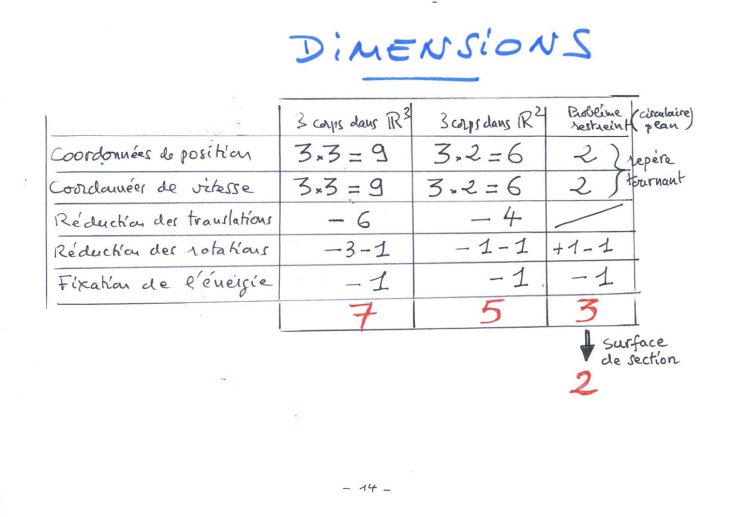 DIMENSIONS
3 corps dans ℝ³ 3 corps dans ℝ² Problème restreint (circulaire plan)
Coordonnées de position 3×3 = 9 3×2 = 6 2
Coordonnées de vitesse 3×3 = 9 3×2 = 6 2
repère tournant
Réduction des translations −6 −4
Réduction des rotations −3−1 −1−1 +1−1
Fixation de l'énergie −1 −1 −1
7 5 3
surface
de section
2
- 14 -